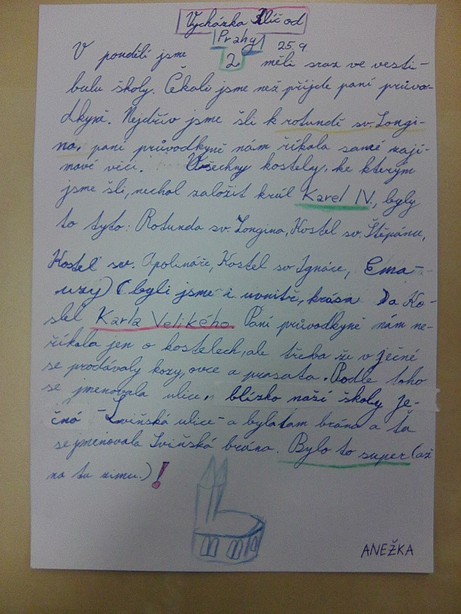 Vycházka Klíč od
Prahy 25.9.
V pondělí jsme 2 měli sraz ve vesti-
bulu školy. Čekali jsme než přijde paní průvo-
dkyně. Nejdřív jsme šli k rotundě sv. Longi-
na, paní průvodkyně nám říkala samé zají-
mavé věci. Všechny kostely, ke kterým
jsme šli, nechal založit král Karel IV., byly
to tyto: Rotunda sv. Longina, Kostel sv. Štěpána,
Kostel sv. Apolináře, Kostel sv. Ignáce, Ema-
uzy) (byli jsme i uvnitř, krása Da Ko-
stel Karla Velikého. Paní průvodkyně nám ne-
říkala jen o kostelech, ale třeba že v Ječné
se prodávaly kozy, ovce a prasata. Podle toho
se jmenovala ulice, blízko naší školy Je-
čná - Sviňská ulice - a byla tam brána a ta
se jmenovala Sviňská brána. Bylo to super (až
na tu zimu.)!
ANEŽKA